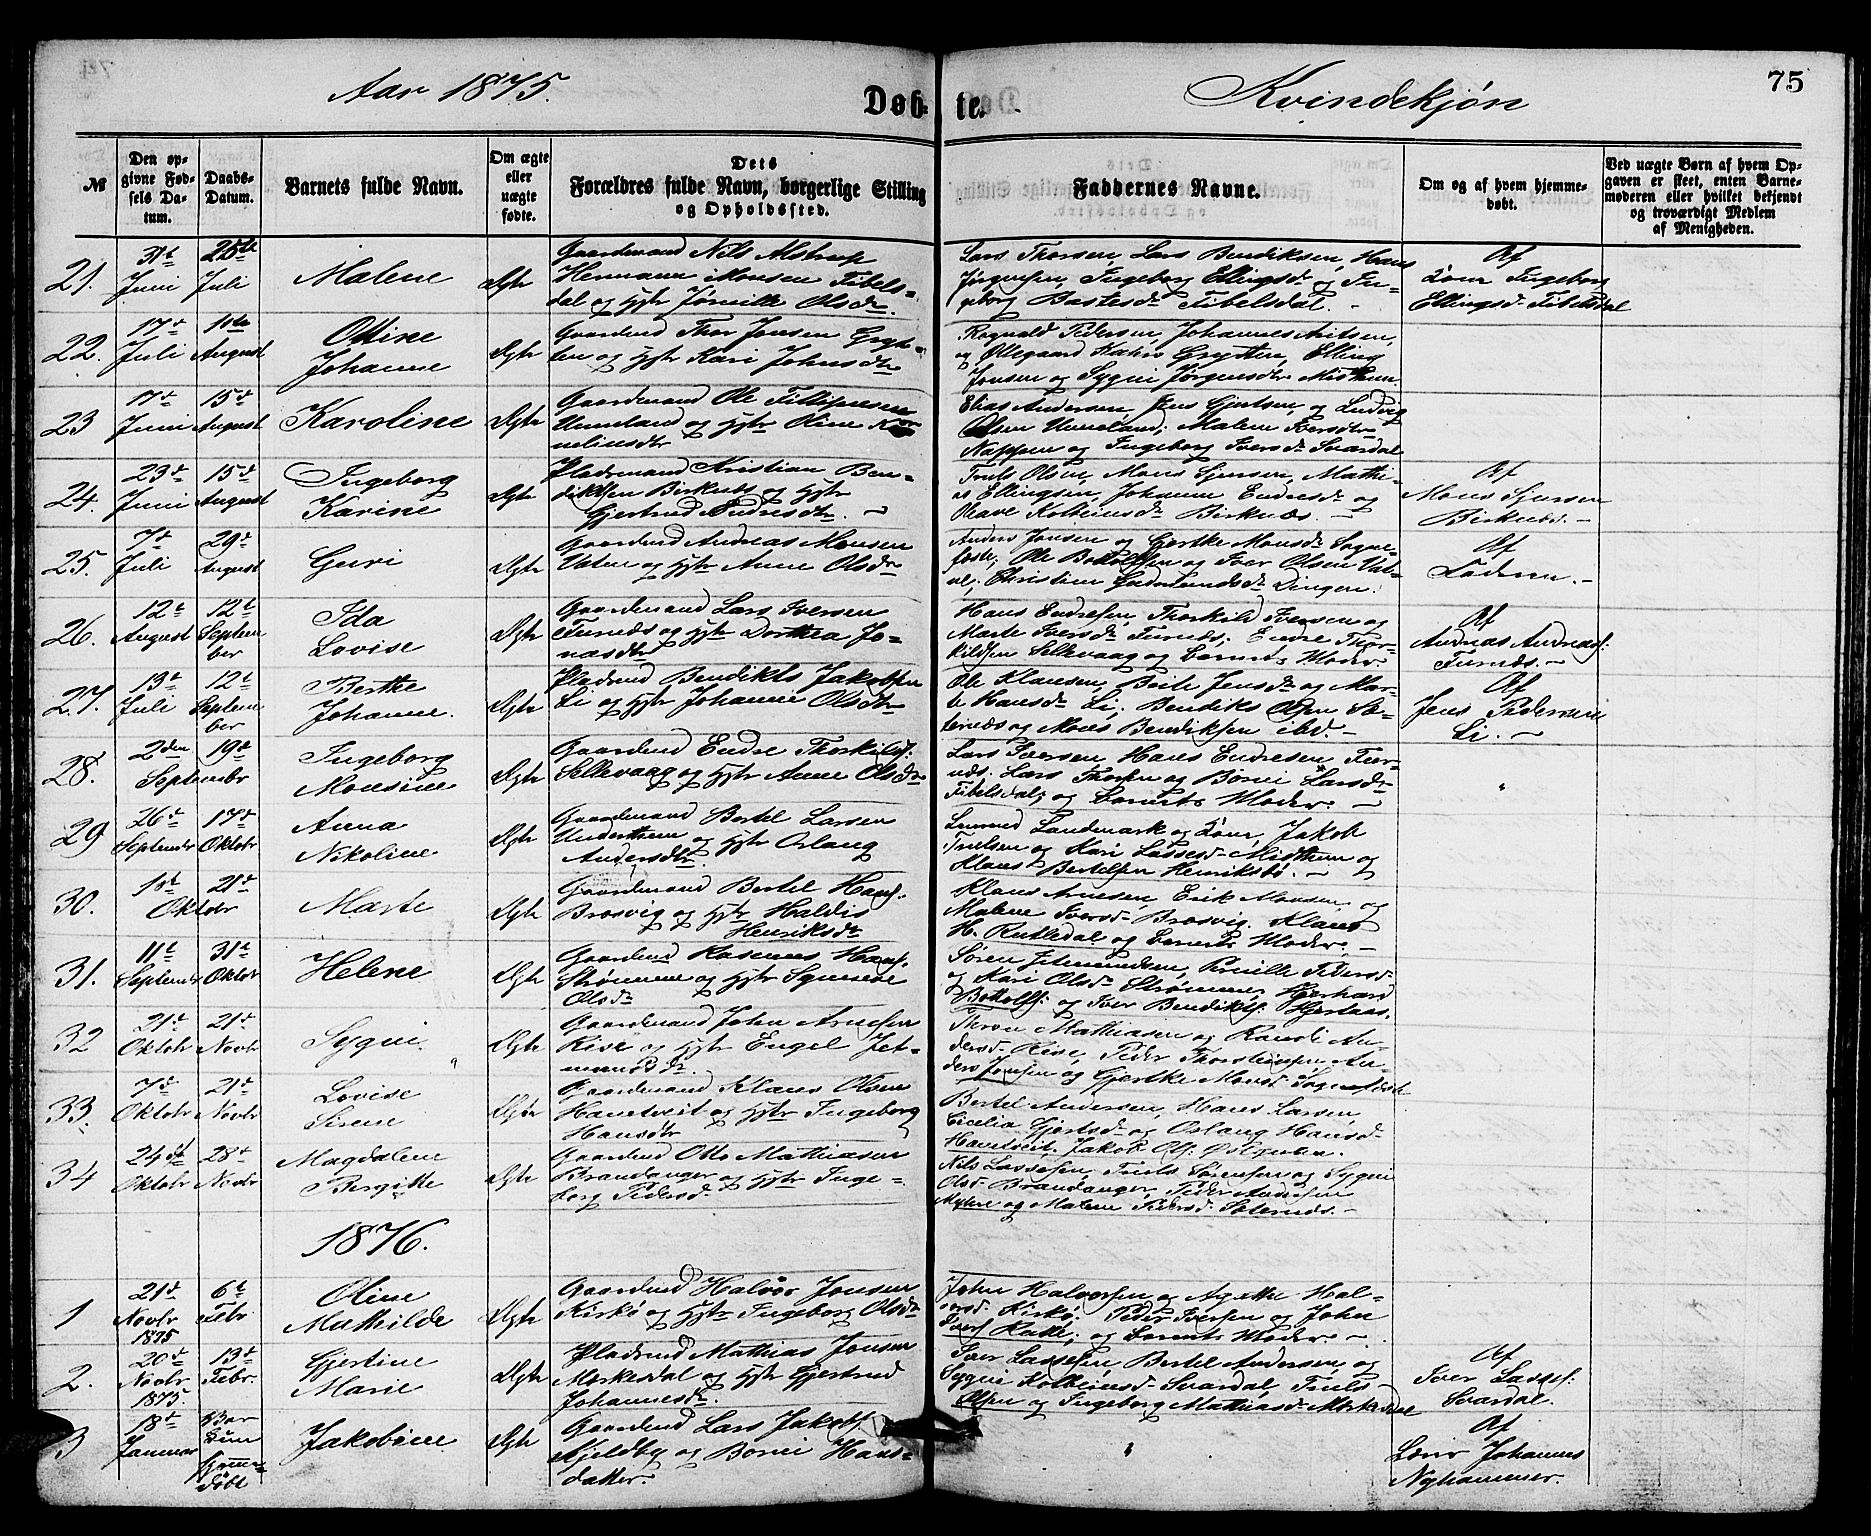 75
Aar 1875.
Døb-te.
Kvindekjøn
№
Den op-
givne Fød-
sels Da-
tum.
Daabs-
Datum.
Barnets fulde Navn.
Om ægte
eller
uægte
fødte.
Dets
Forældres fulde Navn, borgerlige Stilling
og Opholdssted.
Faddernes Navne.
Om og af hvem hjemme-
døbt.
Ved uægte Børn af hvem Op-
gaven er skeet, enten Barne-
moderen eller hvilket bekjendt
og troværdigt Medlem
af Menigheden.
21. Juni Juli Malene Ægte
Gaardmand Nils Alstrup
Hermann Monsen Tibels-
dal og Hstr Olsdtr.
Lars Thorsen, Lars Bendiksen, Hans
Jørgensen, Ingeborg Ellingsdr og In-
geborg Tibelsdal.
Af
Ingeborg
Ellingsd. Tibelsdal
22. 17de Juli August
Oline
Johanne
Ægte
Gaardmd Thor Jonsen Gryt-
ten og Hstr Kari Johnsdtr
Ragnvald Pedersen, Johannes
og Øllegaard Grytten, Elling
Jonsen og Sygni Jørgensdtr Misthun.
23 17de Juni 15de August Karoline Ægte
Gaardmand Ole Fillipussen
Unneland og Hstr Oline Kor-
neliusdtr
Elias Andersen, Jens Gjertsen, og Ludvig
Olsen Unneland; Malene Iversdtr
og Ingeborg Iversdtr Svardal
24. 23de Juni 15de August
Ingeborg
Karine
Ægte
Pladsmand Kristian Ben-
diktsen Birknes og Hstr
Gjertrud Endresdtr.
Truls Olsen, Mons Sjursen, Mathi-
as Ellingsen, Johanne Endresdr og
Oleave Kolbeinsdr Birknæs.
Af
Mons Sjursen
Birknes.
25. 7de Juli 29de August Guri Ægte
Gaardmd Andreas Monsen
og Hstr Anne Olsdr
Anders Jonsen og Gjertke Monsdr Sogne-
feste; Ole Bottolfsen og Iver Olsen
Christine Dingen.
Af
Faderen.
26. 12te August 12te Septem-
ber
Ida
Lovise
Ægte
Gaardmand Lars Iversen
Furenæs og Hstr Dorthea Jo-
nasdtr
Hans Endresen, Thorkild Iversen og
Marte Iversdr Furenæs; Endre Thor-
kildsen Sellevaag og Barnets Moder.
Af
Andreas Andreas:
Furenæs.
27. 13de Juli 12te Septem-
ber
Berthe
Johanne.
Ægte
Pladsmd Bendikts Jakobsen
Li og Hstr Johanne Olsdtr
Ole Klausen, Jensdr og Mar-
te Hansdr Li; Bendiks Olsen Sæ-
ternæs og Mons Bendiksen ibd.
Af
Jens Pedersen
Li.
28. 2den 19de
September
Ingeborg
Monsine
Ægte
Gaardmd Endre Thorkilds:
Sellevaag og Hstr Anne Olsdtr
Lars Iversen Hans Endresen Fur-
næs. Lars Thorsen og Børni Larsdr
Tibelsdal; og Barnets Moder.
29 26de September 17de Oktobr
Anna
Nikoline
Ægte
Gaardmand Bertel Larsen
og Hstr Oslaug
Andersdtr.
Landmark og Kone, Jakob
Trulsen og Kari Lassesd. Misthun og
Klaus Bertelsen Henriksbø.
30. 1ste 21de
Oktobr
Marte Ægte
Gaardmand Bertel Hans:
Brosvig og Hstr Haldis
Henriksdr
Klaus Arnesen, Erik Monsen, og
Malene Iversd. Brosvig. Klaus
H. Rutledal og Barnets Moder.
31. 11te September 31te Oktobr Helene Ægte
Gaardmd Rasmus Hans:
Strømmene og Hstr Synneve
Olsdr
Søren Jetmundsen, Pernille Pedersd.
og Kari Olsdr Strømmene, Gerhard
Bottolfs: og Iver Bendikts: Hjertaas.
32 21de Oktobr 21de Novbr Sygni. Ægte
Gaardmand John Arnesen
Rise og Hstr Engel Jet-
mundsdr.
Thron Mathiasen og Randi An-
dersd. Rise, Peder Thorsteinsen, An-
ders Jonsen og Gjertke Monsd. Sognefeste
33. 7de Oktobr 21de Novbr
Lovise
Sirene
Ægte
Gaardmand Klaus Olsen
Hanetveit og Hstr Ingeborg
Hansdtr
Bertel Andersen, Hans Larsen,
Cicelia Gjertsdr og Oslaug Hansdr
Hanetveit. Jakob Ols: Østgulen.
34 24de Oktobr 28de Novbr
Magdalene
Bergitte
Ægte
Gaardmd Otto Mathiasen
Brandanger og Hstr Inge-
borg Pedersd.
Nils Lassesen, Truls Sørensen og Sygni
Olsd. Brandanger, Peder Andersen
og Malene Pedersd. Sæternæs.
1876.
1 21de Novbr 1875 6te Febr
Oline
Mathilde
Ægte
Gaardmd Halvor Jonsen
Kirkø og Hstr Ingeborg Olsdr
John Halvorsen og Agathe Hal-
vorsd. Kirkø; Peder Iversen og John
og Barnets Moder.
2. 20de Novbr 1875. 13de Febr.
Gjertine
Marie
Ægte
Pladsmd Mathias Jonsen
Mørkesdal og Hstr Gjertrud
Johannesdr.
Iver Lassesen, Bertel Andersen og
Sygni Kolbeinsd. Svardal, Truls
Olsen og Ingeborg Mathiasd. Mørkesdal
Af
Iver Lasses:
Svardal.
3 18de Januar
Jakobine Ægte
Gaardmd Lars Jakobs:
Kjeldby og Børni Hans-
datter.
Af
Lærer Johannes
Nyhammer.